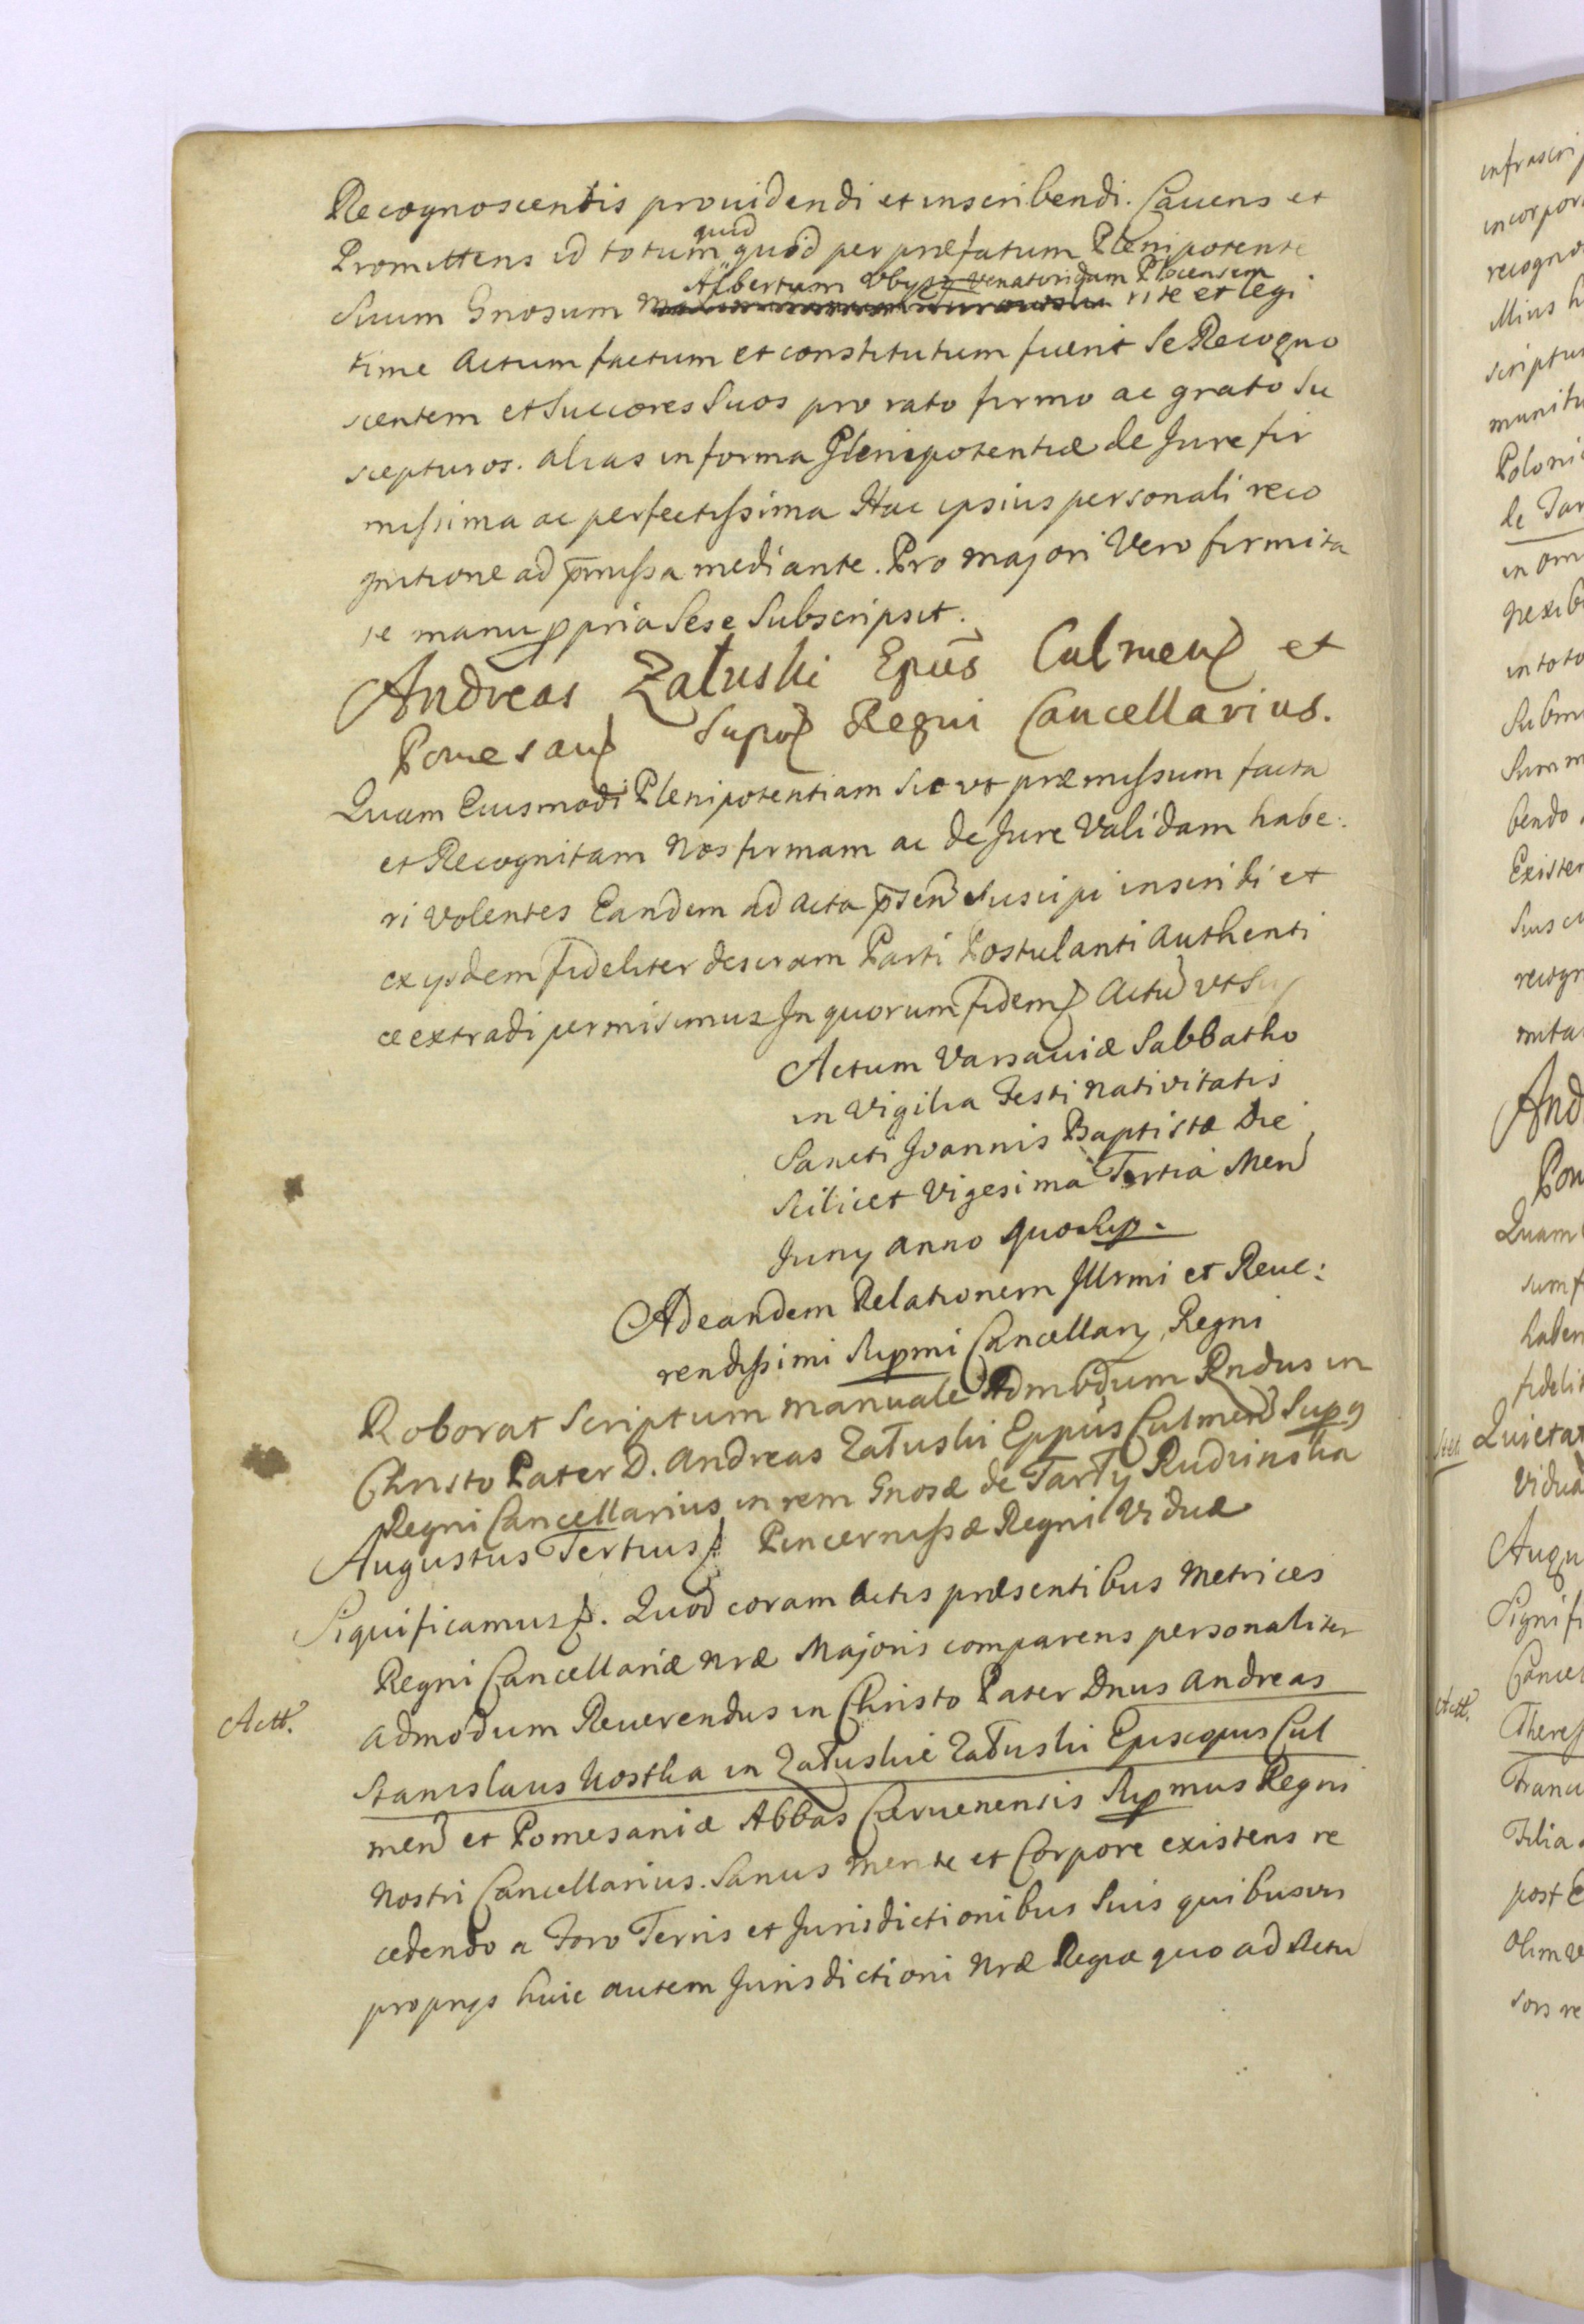 Recognoscentis prouidendi et inscribendi. Cauens et
quid
Promittens id totum quod per præfatum Plenipotente
Albertum Ubysz Venatoridam Plocensem
Suum Gnosum rite et legi
time Actum factum et constitutum fuerit Se Recogno
scentem et Succores Suos pro rato firmo ac grato Su
scepturos. alias in forma Plenipotentiæ de Jure fir
missima ac perfectissima Hac ipsius personali reco
gnitione ad p̄missa mediante. Pro majori Vero firmita
te manu ppria Sese Subscripsit.
Andreas Załuski Epūs Culmen et
Pomesan Suprx Regni Cancellarius.
Quam Eiusmodi Plenipotentiam Sic vt præmissum facta
et Recognitam Nos firmam ac de Jure Validam habe:
ri Volentes Eandem ad acta p̄sen Suscipi inscribi et
ex ijsdem fideliter descram Parti Postulanti Authenti
ce extradi permisimus In quorum fidem Actu vt Sup
Actum Varsauiæ Sabbatho
in Vigilia Festi Nativitatis
Sancti Joannis Baptistæ Die
Scilicet Vigesima Tertia Men
Juny anno quo Sup.
Ad eandem Relationem Illrmi et Reue:
rendissimi Supmi Cancellary Regni
Roborat Scriptum manuale Admodum Rndus in
Christo Pater D. Andreas Załuski Eppus Culmen Supg
Regni Cancellarius in rem Gnosæ de Tarły Rudzinska
Augustus Tertius Pincernissæ Regni Viduæ
Significamus. Quod coram Actis præsentibus Metrices
Regni Cancellariæ Nræ Majoris comparens personaliter
Actt.
Admodum Reuerendus in Christo Pater Dnus Andreas
Stanislaus Kostka in Załuskie Załuski Episcopus Cul
men et Pomesaniæ Abbas Ceruenensis Supmus Regni
Nostri Cancellarius. Sanus mente et Corpore existens re
cedendo a Foro Terris et Jurisdictionibus Suis quibusvis
proprijs huic autem Jurisdictioni Nræ Regiæ quo ad Actu
infrascrip
incorpor
recogno
illius h
scriptur
munitu
Poloni
de Tar
in om
nexib
in toto
Submi
Summ
bendo
Existen
Suscu
recogn
mita
And
Pom
Quam
sum f
haben
fideli
Quietat
Vidua
Augu
Signifi
Cance
Actt.
Theres
Franci
Filia
post
Olim
sors re